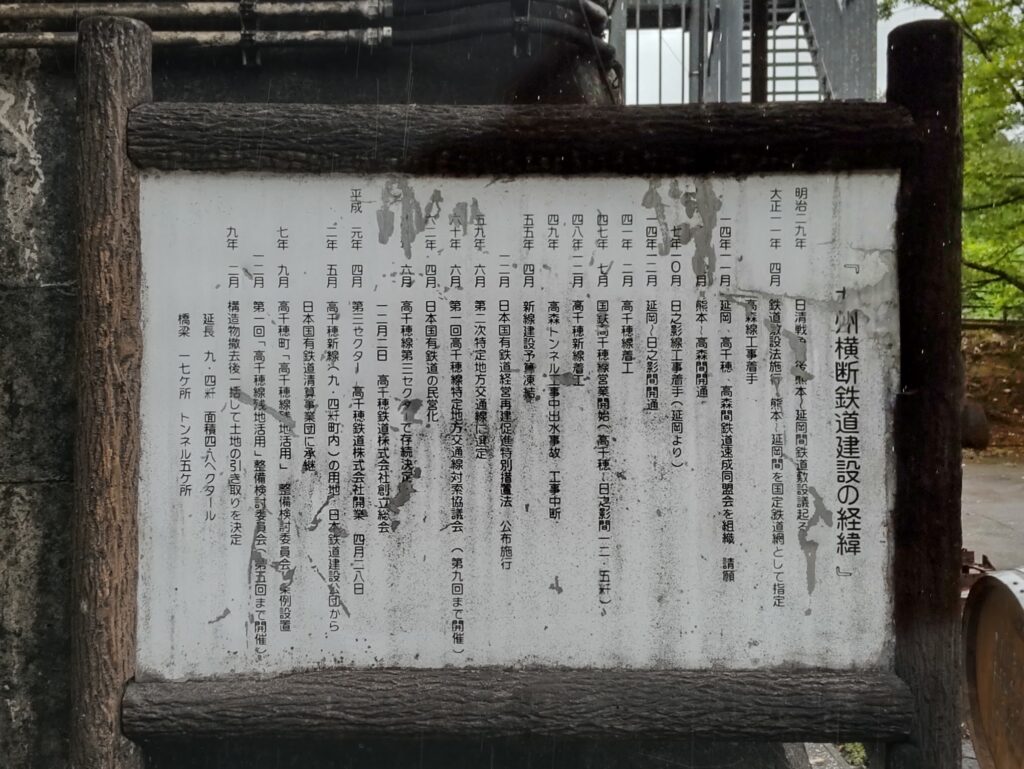 『 州横断鉄道建設の経緯 』
明治二九年 日清戦 後熊本～延岡間鉄道敷設議起る
大正一一年 四月 鉄道敷設法施行 熊本～延岡間を国定鉄道網として指定
高森線工事着手
一四年一一月 延岡、高千穂、高森間鉄道速成同盟会を組織 請願
月 熊本～高森間開通
七年一〇月 日之影線工事着手（延岡より）
一四年一二月 延岡～日之影間開通
四一年 二月 高千穂線着工
四七年 七月 国鉄高千穂線営業開始（高千穂～日之影間一二・五粁）
四八年一二月 高千穂新線着工
四九年 高森トンネル工事中出水事故 工事中断
五五年 四月 新線建設予算凍結
一二月 日本国有鉄道経営再建促進特別措置法 公布施行
五九年 六月 第二次特定地方交通線に選定
六十年 六月 第一回高千穂線特定地方交通線対策協議会 （第九回まで開催）
二年 四月 日本国有鉄道の民営化
六月 高千穂線第三セクタ で存続決定
一二月二日 高千穂鉄道株式会社創立総会
平成 元年 四月 第三セクター 高千穂鉄道株式会社開業 四月二八日
二年 五月 高千穂新線（九・四粁町内）の用地 日本鉄道建設公団から
日本国有鉄道清算事業団に承継
七年 九月 高千穂町「高千穂線残地活用」整備検討委員会 条例設置
一二月 第一回「高千穂線残地活用」整備検討委員会（第五回まで開催）
九年 二月 構造物撤去後一括して土地の引き取りを決定
延長 九・四粁 面積四八ヘクタール
橋梁 一七ケ所 トンネル五ケ所